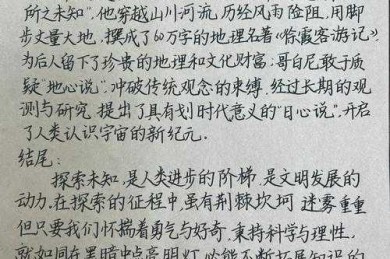 所之未知",他穿越山川河流,历经风雨险阻,用脚
步丈量大地,撰成了60万字的地理名著《徐霞客游记》
为后人留下了珍贵的地理和文化财富;哥白尼敢于质
疑"地心说",冲破传统观念的束缚,经过长期的观
测与研究,提出了具有划时代意义的"日心说",开启
了人类认识宇宙的新纪元.
结尾:
探索未知,是人类进步的阶梯,是文明发展的
动力,在探索的征程中,虽有荆棘坎坷 迷雾重重
但只要我们怀揣着勇气与好奇,秉持科学与理性,
就如同在黑暗中点亮明灯,必能不断拓展知识的